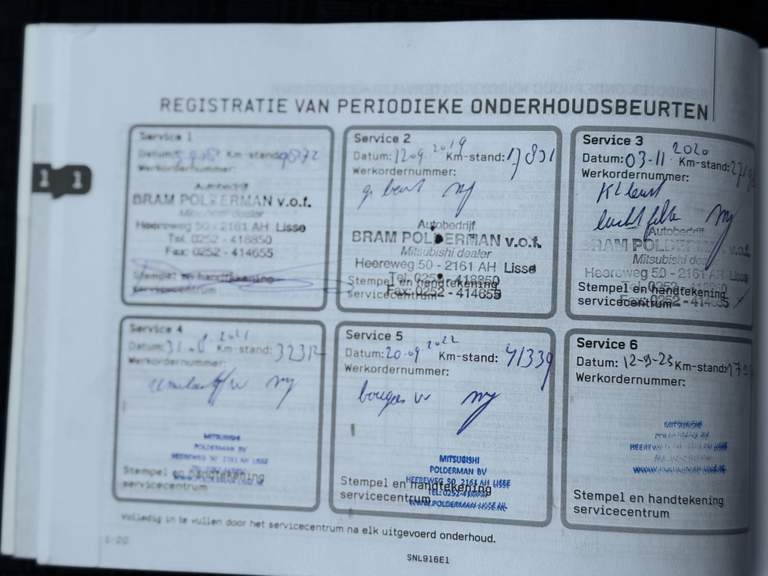 REGISTRATIE VAN PERIODIEKE ONDERHOUDSBEURTEN
Service 1
Datum: Km-stand:
Werkordernummer:
Autobedrijf
BRAM POLDERMAN v.o.f.
Mitsubishi dealer
Heereweg 50 - 2161 AH Lisse
Tel. 0252 - 418850
Fax: 0252 - 414655
Stempel en handtekening
servicecentrum
Service 2
Datum: 12-09 2019 Km-stand: 17831
Werkordernummer:
Autobedrijf
BRAM POLDERMAN v.o.f.
Mitsubishi dealer
Heereweg 50 - 2161 AH Lisse
Tel. 0252 - 418850
Stempel en handtekening
Fax: 0252 - 414655
servicecentrum
Service 3
Datum: 03-11 2020 Km-stand:
Werkordernummer:
Autobedrijf
BRAM POLDERMAN v.o.f.
Mitsubishi dealer
Heereweg 50 - 2161 AH Lisse
Stempel en handtekening
servicecentrum
Service 4
Datum: 2021 Km-stand:
Werkordernummer:
MITSUBISHI
POLDERMAN BV
HEEREWEG 50 2161 AH LISSE
Stempel en handtekening
servicecentrum
Service 5
Datum: 20-09-2022 Km-stand: 41339
Werkordernummer:
MITSUBISHI
POLDERMAN BV
HEEREWEG 50, 2161 AH LISSE
Stempel en handtekening
TEL: 0252-418850
servicecentrum
WWW.POLDERMAN-LISSE.NL
Service 6
Datum: 12-9-23 Km-stand:
Werkordernummer:
MITSUBISHI
Stempel en handtekening
servicecentrum
Volledig in te vullen door het servicecentrum na elk uitgevoerd onderhoud.
1-20
SNL916E1
1 1